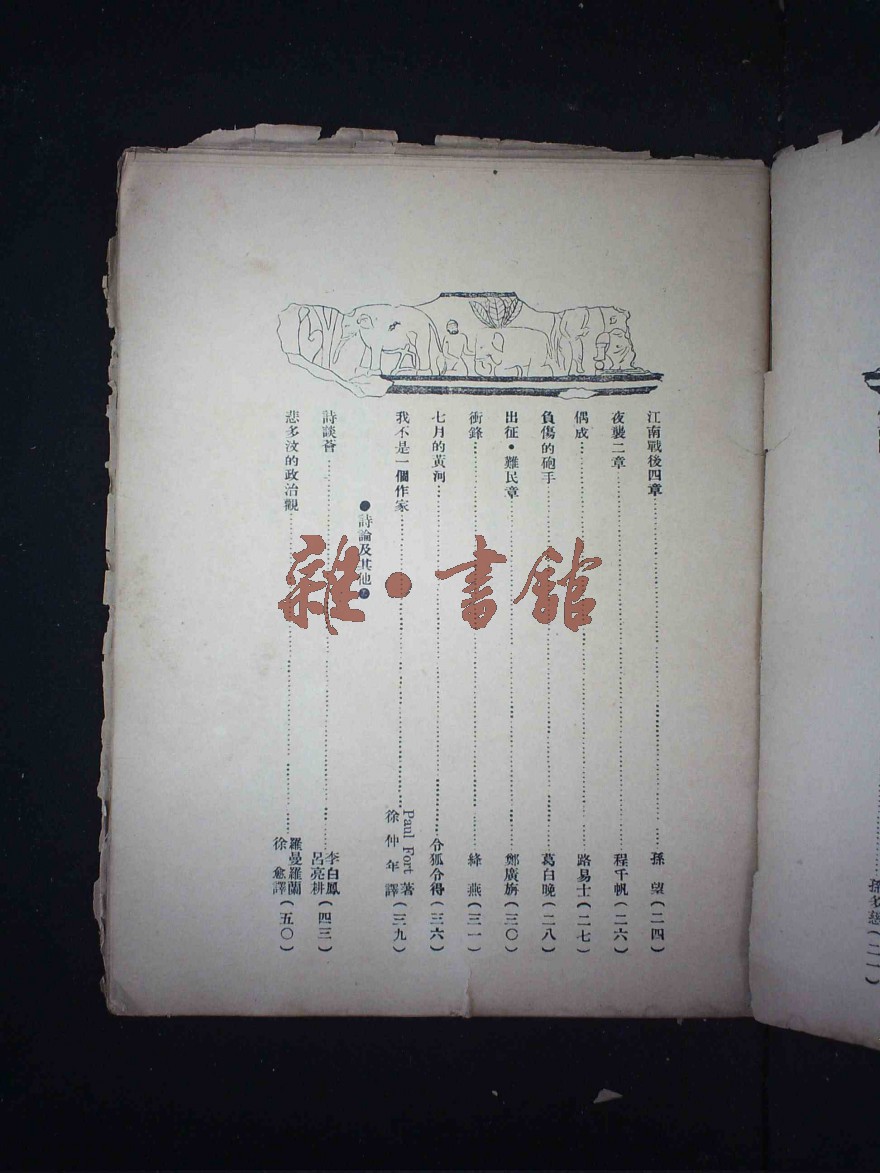 江南戰後四章 孫望(二四)
夜襲二章 程千帆(二六)
偶成 路易士(二七)
負傷的砲手 葛白晚(二八)
出征·難民章 鄭廣旃(三〇)
衝鋒 絳燕(三一)
七月的黃河 令狐令得(三六)
我不是一個作家 Paul Fort 著 徐仲年譯(三九)
●詩論及其他●
詩談薈 李白鳳 呂亮耕(四三)
悲多汶的政治觀 羅曼羅蘭 徐愈譯(五〇)
雜·書館
孫多慈(二一)